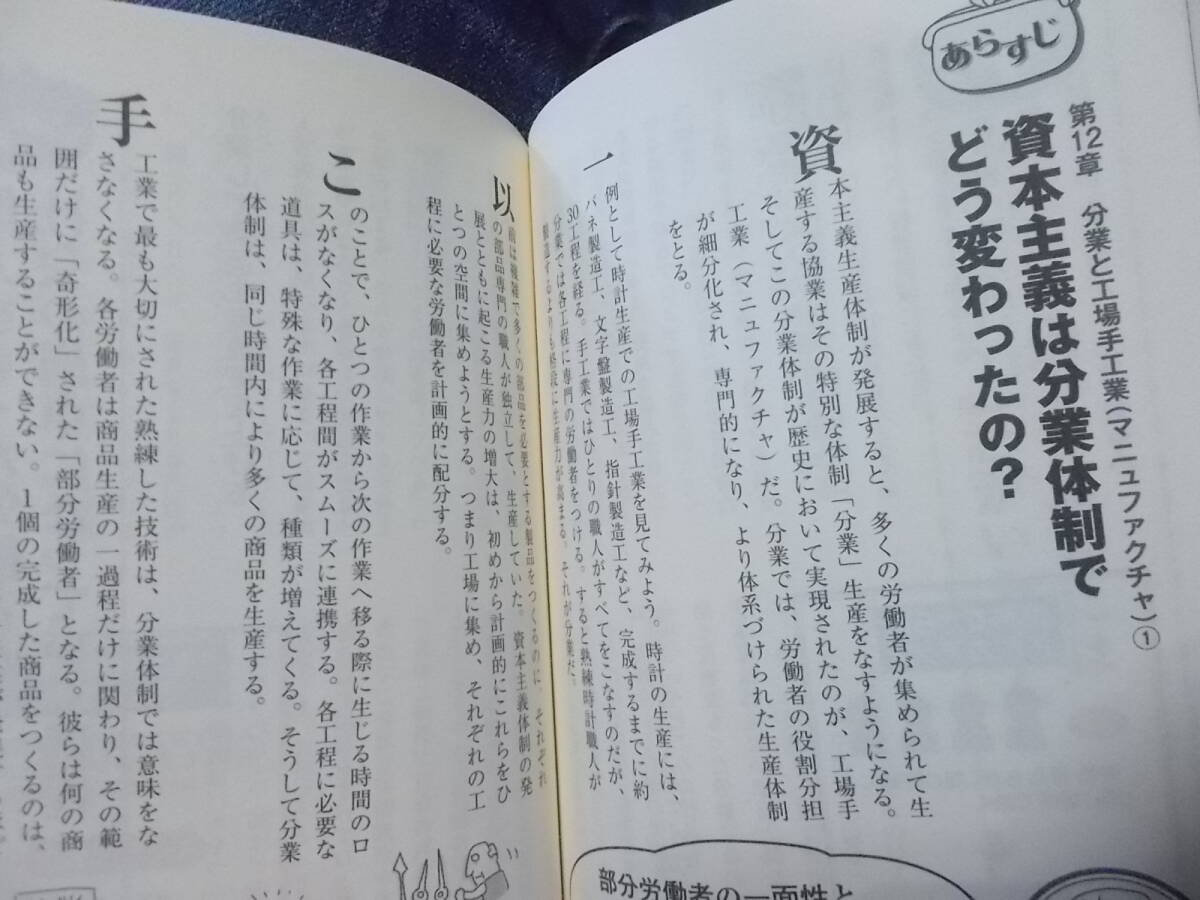 あらすじ
第12章 分業と工場手工業(マニュファクチャ)①
資本主義は分業体制で
どう変わったの?
資本主義生産体制が発展すると、多くの労働者が集められて生
産する協業はその特別な体制「分業」生産をなすようになる。
そしてこの分業体制が歴史において実現されたのが、工場手
工業(マニュファクチャ)だ。分業では、労働者の役割分担
が細分化され、専門的になり、より体系づけられた生産体制
をとる。
一例として時計生産での工場手工業を見てみよう。時計の生産には、
バネ製造工、文字盤製造工、指針製造工など、完成するまでに約
30工程を経る。手工業ではひとりの職人がすべてをこなすのだが、
分業では各工程に専門の労働者をつける。すると熟練時計職人が
製造するよりも格段に生産力が高まる。それが分業だ。
以前は複雑で多くの部品を必要とする製品をつくるのに、それぞれ
の部品専門の職人が独立して、生産していた。資本主義体制の発
展とともに起こる生産力の増大は、初めから計画的にこれらをひ
とつの空間に集めようとする。つまり工場に集め、それぞれの工
程に必要な労働者を計画的に配分する。
このことで、ひとつの作業から次の作業へ移る際に生じる時間のロ
スがなくなり、各工程間がスムーズに連携する。各工程に必要な
道具は、特殊な作業に応じて、種類が増えてくる。そうして分業
体制は、同じ時間内により多くの商品を生産する。
手工業で最も大切にされた熟練した技術は、分業体制では意味をな
さなくなる。各労働者は商品生産の一過程だけに関わり、その範
囲だけに「奇形化」された「部分労働者」となる。彼らは何の商
品も生産することができない。1個の完成した商品をつくるのは、
部分労働者の一面性と